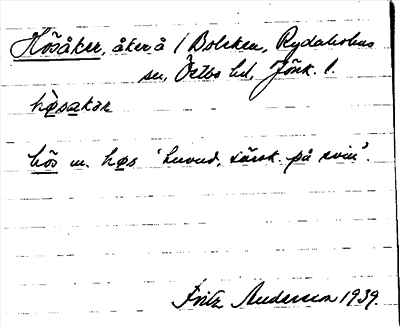 Hösåker, åker å 1 Bolsken, Rydaholms
sn, Östbo hd, Jönk. l.
hø̀sakər
hös m. høs 'huvud, särsk. på svin'.
Fritz Anderson 1939.